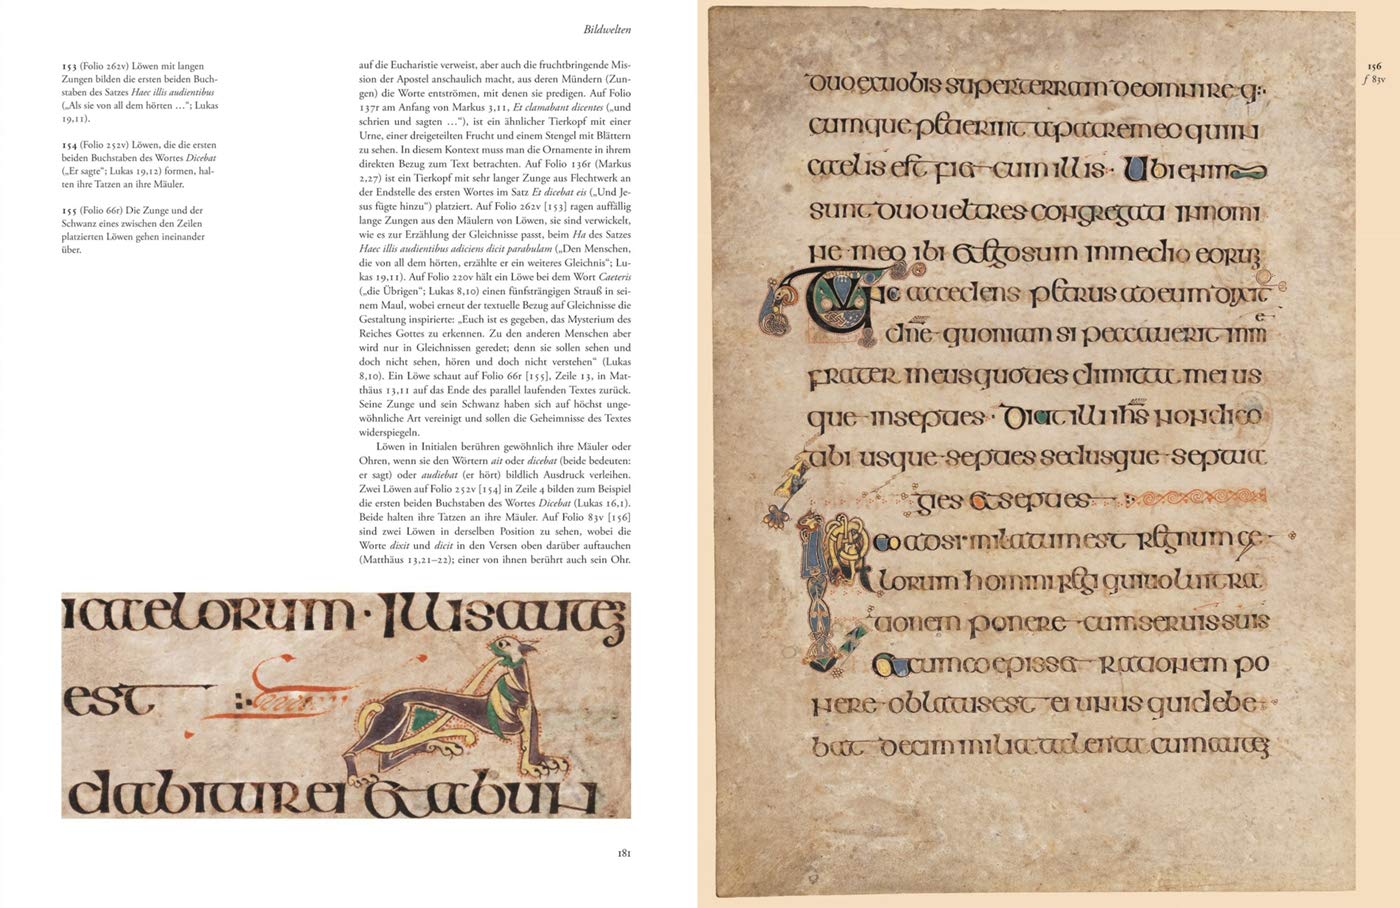 Bildwelten
153 (Folio 262v) Löwen mit langen
Zungen bilden die ersten beiden Buch-
staben des Satzes Haec illis audientibus
(„Als sie von all dem hörten …“; Lukas
19,11).
154 (Folio 252v) Löwen, die die ersten
beiden Buchstaben des Wortes Dicebat
(„Er sagte“; Lukas 19,12) formen, hal-
ten ihre Tatzen an ihre Mäuler.
155 (Folio 66r) Die Zunge und der
Schwanz eines zwischen den Zeilen
platzierten Löwen gehen ineinander
über.
auf die Eucharistie verweist, aber auch die fruchtbringende Mis-
sion der Apostel anschaulich macht, aus deren Mündern (Zun-
gen) die Worte entströmen, mit denen sie predigen. Auf Folio
137r am Anfang von Markus 3,11, Et clamabant dicentes („und
schrien und sagten …“), ist ein ähnlicher Tierkopf mit einer
Urne, einer dreigeteilten Frucht und einem Stengel mit Blättern
zu sehen. In diesem Kontext muss man die Ornamente in ihrem
direkten Bezug zum Text betrachten. Auf Folio 136r (Markus
2,27) ist ein Tierkopf mit sehr langer Zunge aus Flechtwerk an
der Endstelle des ersten Wortes im Satz Et dicebat eis („Und Je-
sus fügte hinzu“) platziert. Auf Folio 262v [153] ragen auffällig
lange Zungen aus den Mäulern von Löwen, sie sind verwickelt,
wie es zur Erzählung der Gleichnisse passt, beim Ha des Satzes
Haec illis audientibus adiciens dicit parabulam („Den Menschen,
die von all dem hörten, erzählte er ein weiteres Gleichnis“; Lu-
kas 19,11). Auf Folio 220v hält ein Löwe bei dem Wort Caeteris
(„die Übrigen“; Lukas 8,10) einen fünfsträngigen Strauß in sei-
nem Maul, wobei erneut der textuelle Bezug auf Gleichnisse die
Gestaltung inspirierte: „Euch ist es gegeben, das Mysterium des
Reiches Gottes zu erkennen. Zu den anderen Menschen aber
wird nur in Gleichnissen geredet; denn sie sollen sehen und
doch nicht sehen, hören und doch nicht verstehen“ (Lukas
8,10). Ein Löwe schaut auf Folio 66r [155], Zeile 13, in Mat-
thäus 13,11 auf das Ende des parallel laufenden Textes zurück.
Seine Zunge und sein Schwanz haben sich auf höchst unge-
wöhnliche Art vereinigt und sollen die Geheimnisse des Textes
widerspiegeln.
Löwen in Initialen berühren gewöhnlich ihre Mäuler oder
Ohren, wenn sie den Wörtern ait oder dicebat (beide bedeuten:
er sagt) oder audiebat (er hört) bildlich Ausdruck verleihen.
Zwei Löwen auf Folio 252v [154] in Zeile 4 bilden zum Beispiel
die ersten beiden Buchstaben des Wortes Dicebat (Lukas 16,1).
Beide halten ihre Tatzen an ihre Mäuler. Auf Folio 83v [156]
sind zwei Löwen in derselben Position zu sehen, wobei die
Worte dixit und dicit in den Versen oben darüber auftauchen
(Matthäus 13,21–22); einer von ihnen berührt auch sein Ohr.
caelorum · Illis autem
est
dabitur ei et abun
181
156
f 83v
duo ex uobis super terram de omni re q:
cumque petierint a patre meo qui in
caelis est fiet cum illis · Ubi enim
sunt duo uel tres congregati in nomi
ne meo ibi et ego sum in medio eorum
Tunc accedens petrus ad eum dixit
dne quoniam si peccauerit in me
frater meus quoties dimittam ei us
que septies · Dicit illi ihs non dico
tibi usque septies sed usque septua
gies et septies
Ideo adsimilatum est regnum ce
lorum homini regi qui uoluit ra
tionem ponere cum seruis suis
Et cum coepisset rationem po
nere oblatus est ei unus qui debe
bat decim milia talenta cum autem